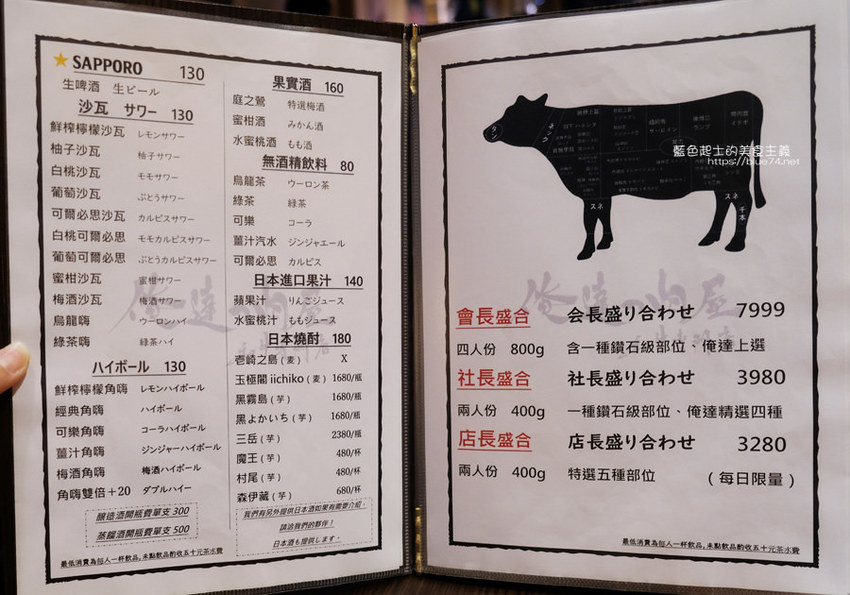 ★SAPPORO 130
生啤酒 生ビール
沙瓦 サワー 130
鮮榨檸檬沙瓦 レモンサワー
柚子沙瓦 柚子サワー
白桃沙瓦 モモサワー
葡萄沙瓦 ぶとうサワー
可爾必思沙瓦 カルピスサワー
白桃可爾必思 モモカルピスサワー
葡萄可爾必思 ぶとうカルピスサワー
蜜柑沙瓦 蜜柑サワー
梅酒沙瓦 梅酒サワー
烏龍嗨 ウーロンハイ
綠茶嗨 緑茶ハイ
ハイボール 130
鮮榨檸檬角嗨 レモンハイボール
經典角嗨 ハイボール
可樂角嗨 コーラハイボール
薑汁角嗨 ジンジャーハイボール
梅酒角嗨 梅酒ハイボール
角嗨雙倍+20 ダブルハイー
釀造酒開瓶費單支 300
蒸餾酒開瓶費單支 500
最低消費為每人一杯飲品,未點飲品酌收五十元茶水費
果實酒 160
庭之鶯 特選梅酒
蜜柑酒 みかん酒
水蜜桃酒 もも酒
無酒精飲料 80
烏龍茶 ウーロン茶
綠茶 緑茶
可樂 コーラ
薑汁汽水 ジンジャエール
可爾必思 カルピス
日本進口果汁 140
蘋果汁 りんごジュース
水蜜桃汁 ももジュース
日本燒酎 180
壱崎之島(麦) X
玉極閣 iichiko(麦) 1680/瓶
黑霧島(芋) 1680/瓶
黒よかいち(芋) 1680/瓶
三岳(芋) 2380/瓶
魔王(芋) 480/杯
村尾(芋) 480/杯
森伊蔵(芋) 680/杯
我們有另外提供日本酒如果有需要介紹,
請洽我們的夥伴!
日本酒も提供します。
タン
ネック
スネ
スネ
千本
藍色起士的美食主義
https://blue74.net
會長盛合 会長盛り合わせ 7999
四人份 800g 含一種鑽石級部位、俺達上選
社長盛合 社長盛り合わせ 3980
兩人份 400g 一種鑽石級部位、俺達精選四種
店長盛合 店長盛り合わせ 3280
兩人份 400g 特選五種部位 (每日限量)
最低消費為每人一杯飲品,未點飲品酌收五十元茶水費